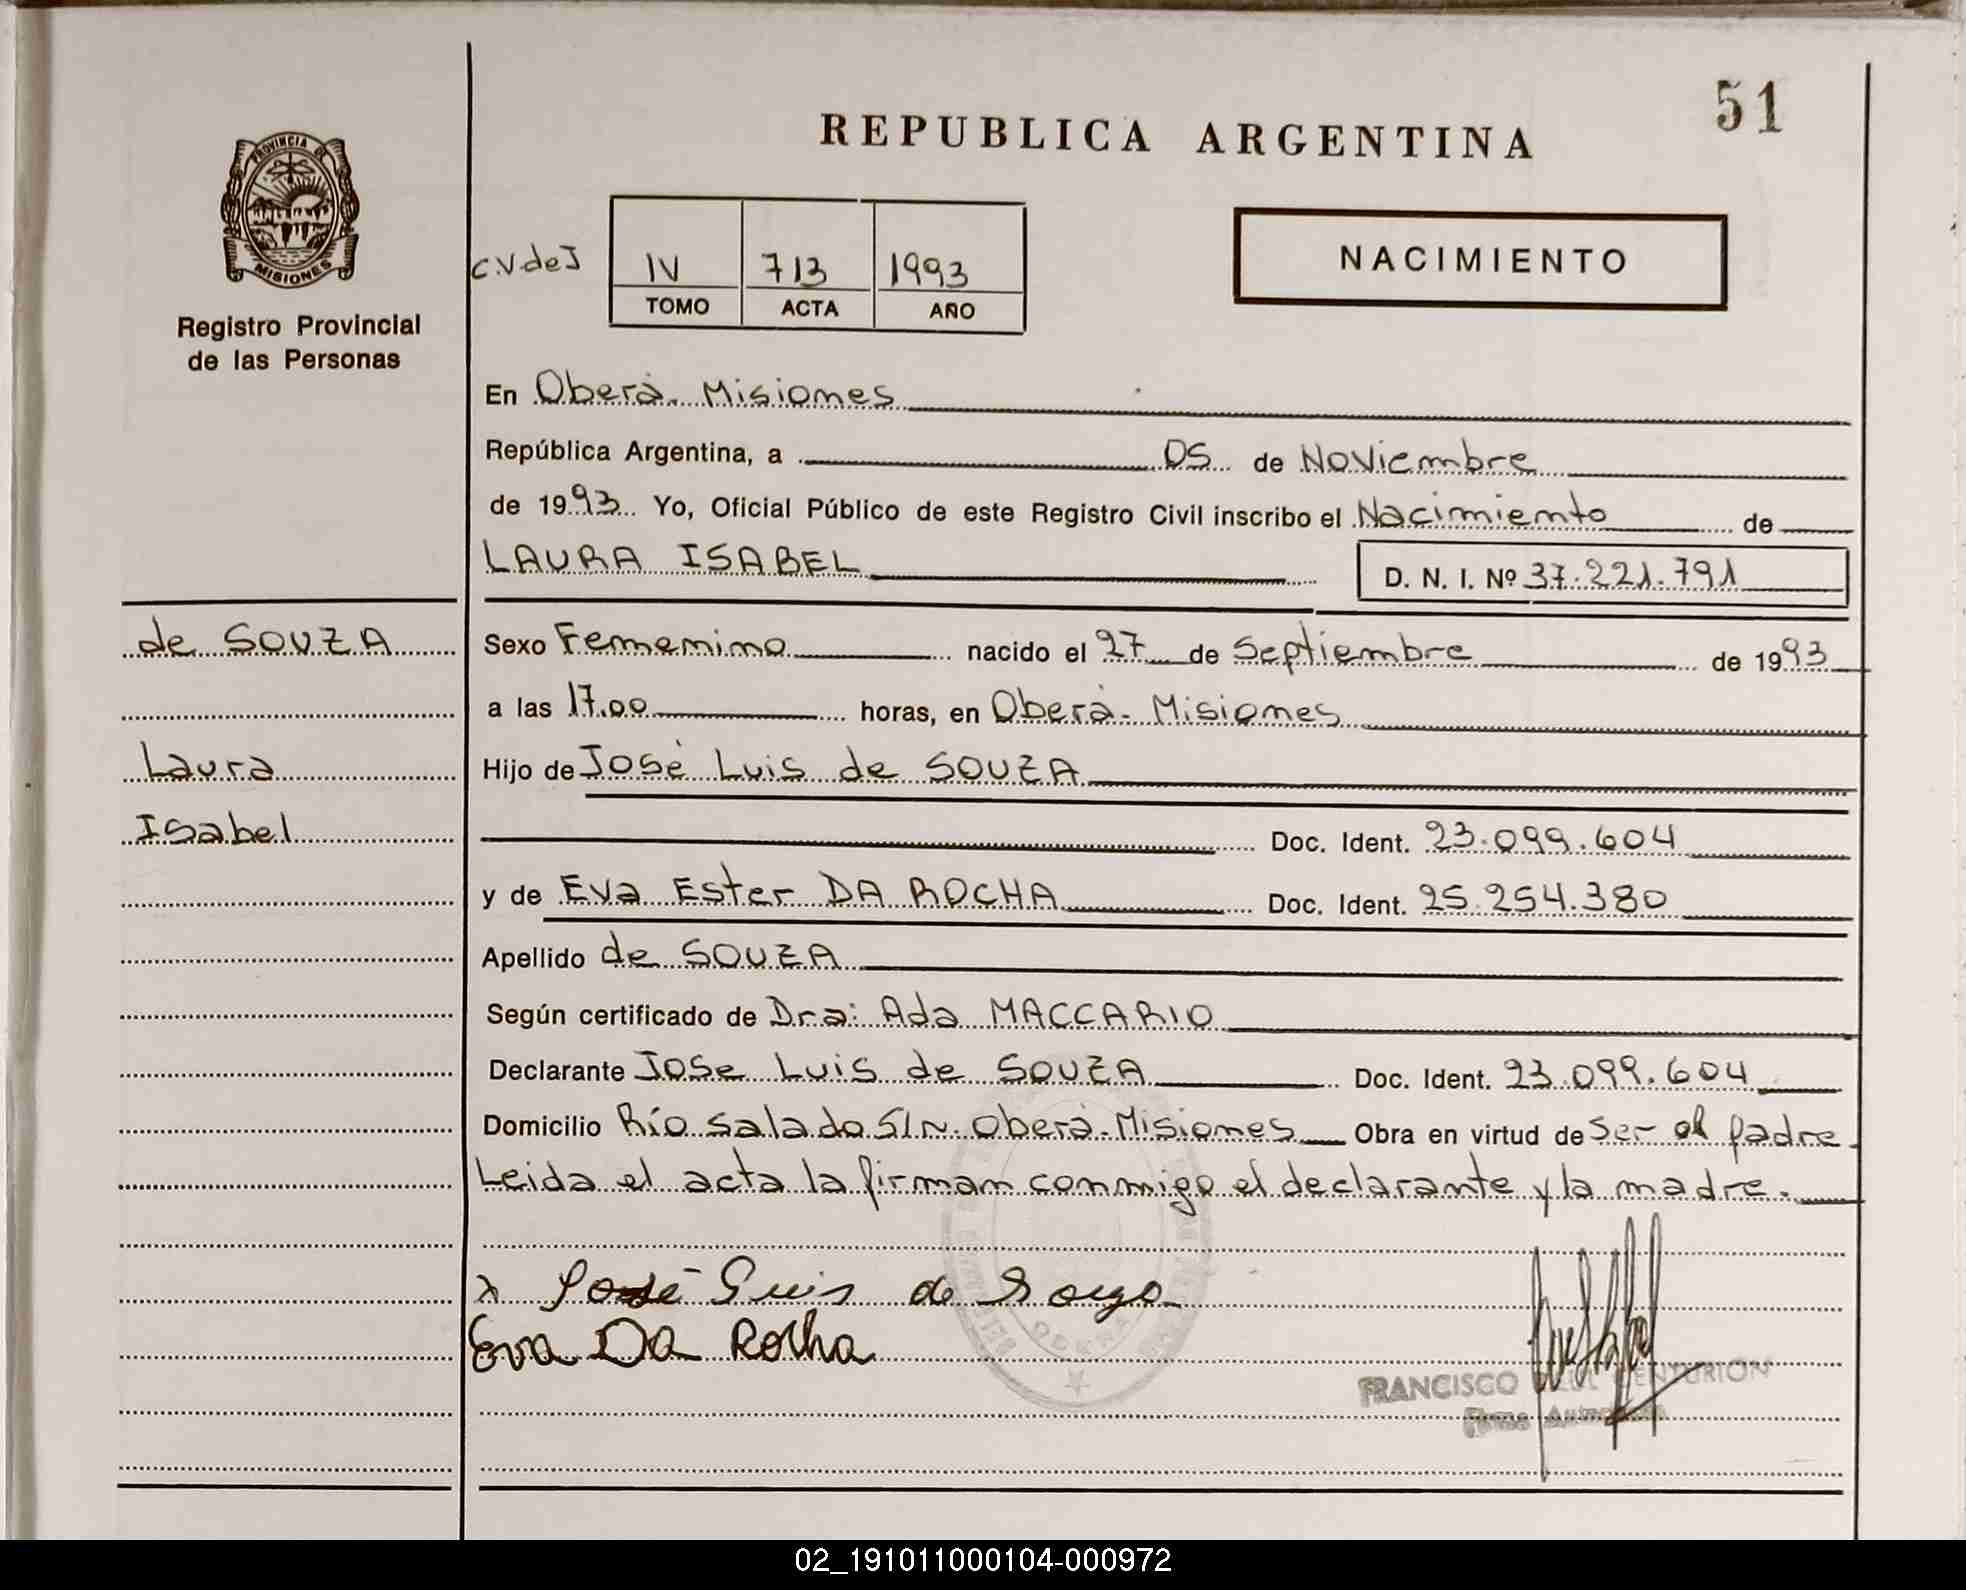 51
REPUBLICA ARGENTINA
PROVINCIA DE
MISIONES
Registro Provincial
de las Personas
C.V.deJ
IV 713 1993
TOMO ACTA AÑO
NACIMIENTO
En Oberá. Misiones
República Argentina, a 05 de Noviembre
de 1993 Yo, Oficial Público de este Registro Civil inscribo el Nacimiento de
LAURA ISABEL D. N. I. Nº 37.221.791
de SOUZA
Laura
Isabel
Sexo Femenino nacido el 27 de Septiembre de 1993
a las 17.00 horas, en Oberá. Misiones
Hijo de José Luis de SOUZA
Doc. Ident. 23.099.604
y de Eva Ester DA ROCHA Doc. Ident. 25.254.380
Apellido de SOUZA
Según certificado de Dra: Ada MACCARIO
Declarante Jose Luis de SOUZA Doc. Ident. 23.099.604
Domicilio Río Salado S/N. Oberá. Misiones Obra en virtud de ser el padre
Leida el acta la firman conmigo el declarante y la madre.
x José Luis de Souza
Eva DA Rocha
FRANCISCO CENTURION
Firma
02_191011000104-000972